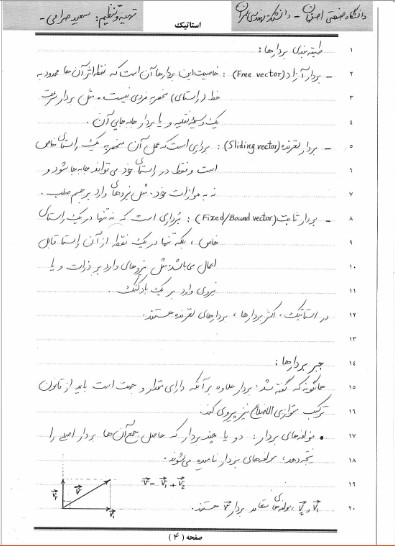 دانشگاه صنعتی اصفهان - دانشکده مهندسی عمران
تهیه و تنظیم: سعید صرامی -
استاتیک
۱ طبقه بندی بردارها:
۲ - بردار آزاد (Free vector): خاصیت این بردارها آن است که نقطه اثر آن ها محدود به
۳ خط (راستای) منحصر به فردی نیست. مثل بردار سرعت
۴ یک وسیله نقلیه و یا بردار جابه جایی آن.
۵ - بردار لغزنده (Sliding vector): برداری است که عمل آن منحصر به یک راستای خاص
۶ است و فقط در راستای خود می تواند جابه جا شود و
۷ نه به موازات خود. مثل نیروهای وارد بر جسم صلب.
۸ - بردار ثابت (Fixed/Bound vector): برداری است که نه تنها در یک راستای
۹ خاص، بلکه تنها در یک نقطه از آن راستا قابل
۱۰ اعمال می باشد مثل نیروهای وارد بر ذرات و یا
۱۱ نیروی وارد بر یک
۱۲ در استاتیک، اکثر بردارها، بردارهای لغزنده هستند.
۱۳
۱۴ جبر بردارها:
۱۵ همانگونه که گفته شد: بردار علاوه بر آنکه دارای مقدار و جهت است باید از قانون
۱۶ ترکیب متوازی الاضلاع نیز پیروی کند.
۱۷ • مولفه های بردار: دو یا چند بردار که حاصل جمع آن ها بردار اصلی را
۱۸ نتیجه دهد، مولفه های بردار نامیده می شوند.
۱۹ V = V₁ + V₂
۲۰ V₁ و V₂ مولفه های بردار V هستند.
V₂ V V₁
صفحه (۴)